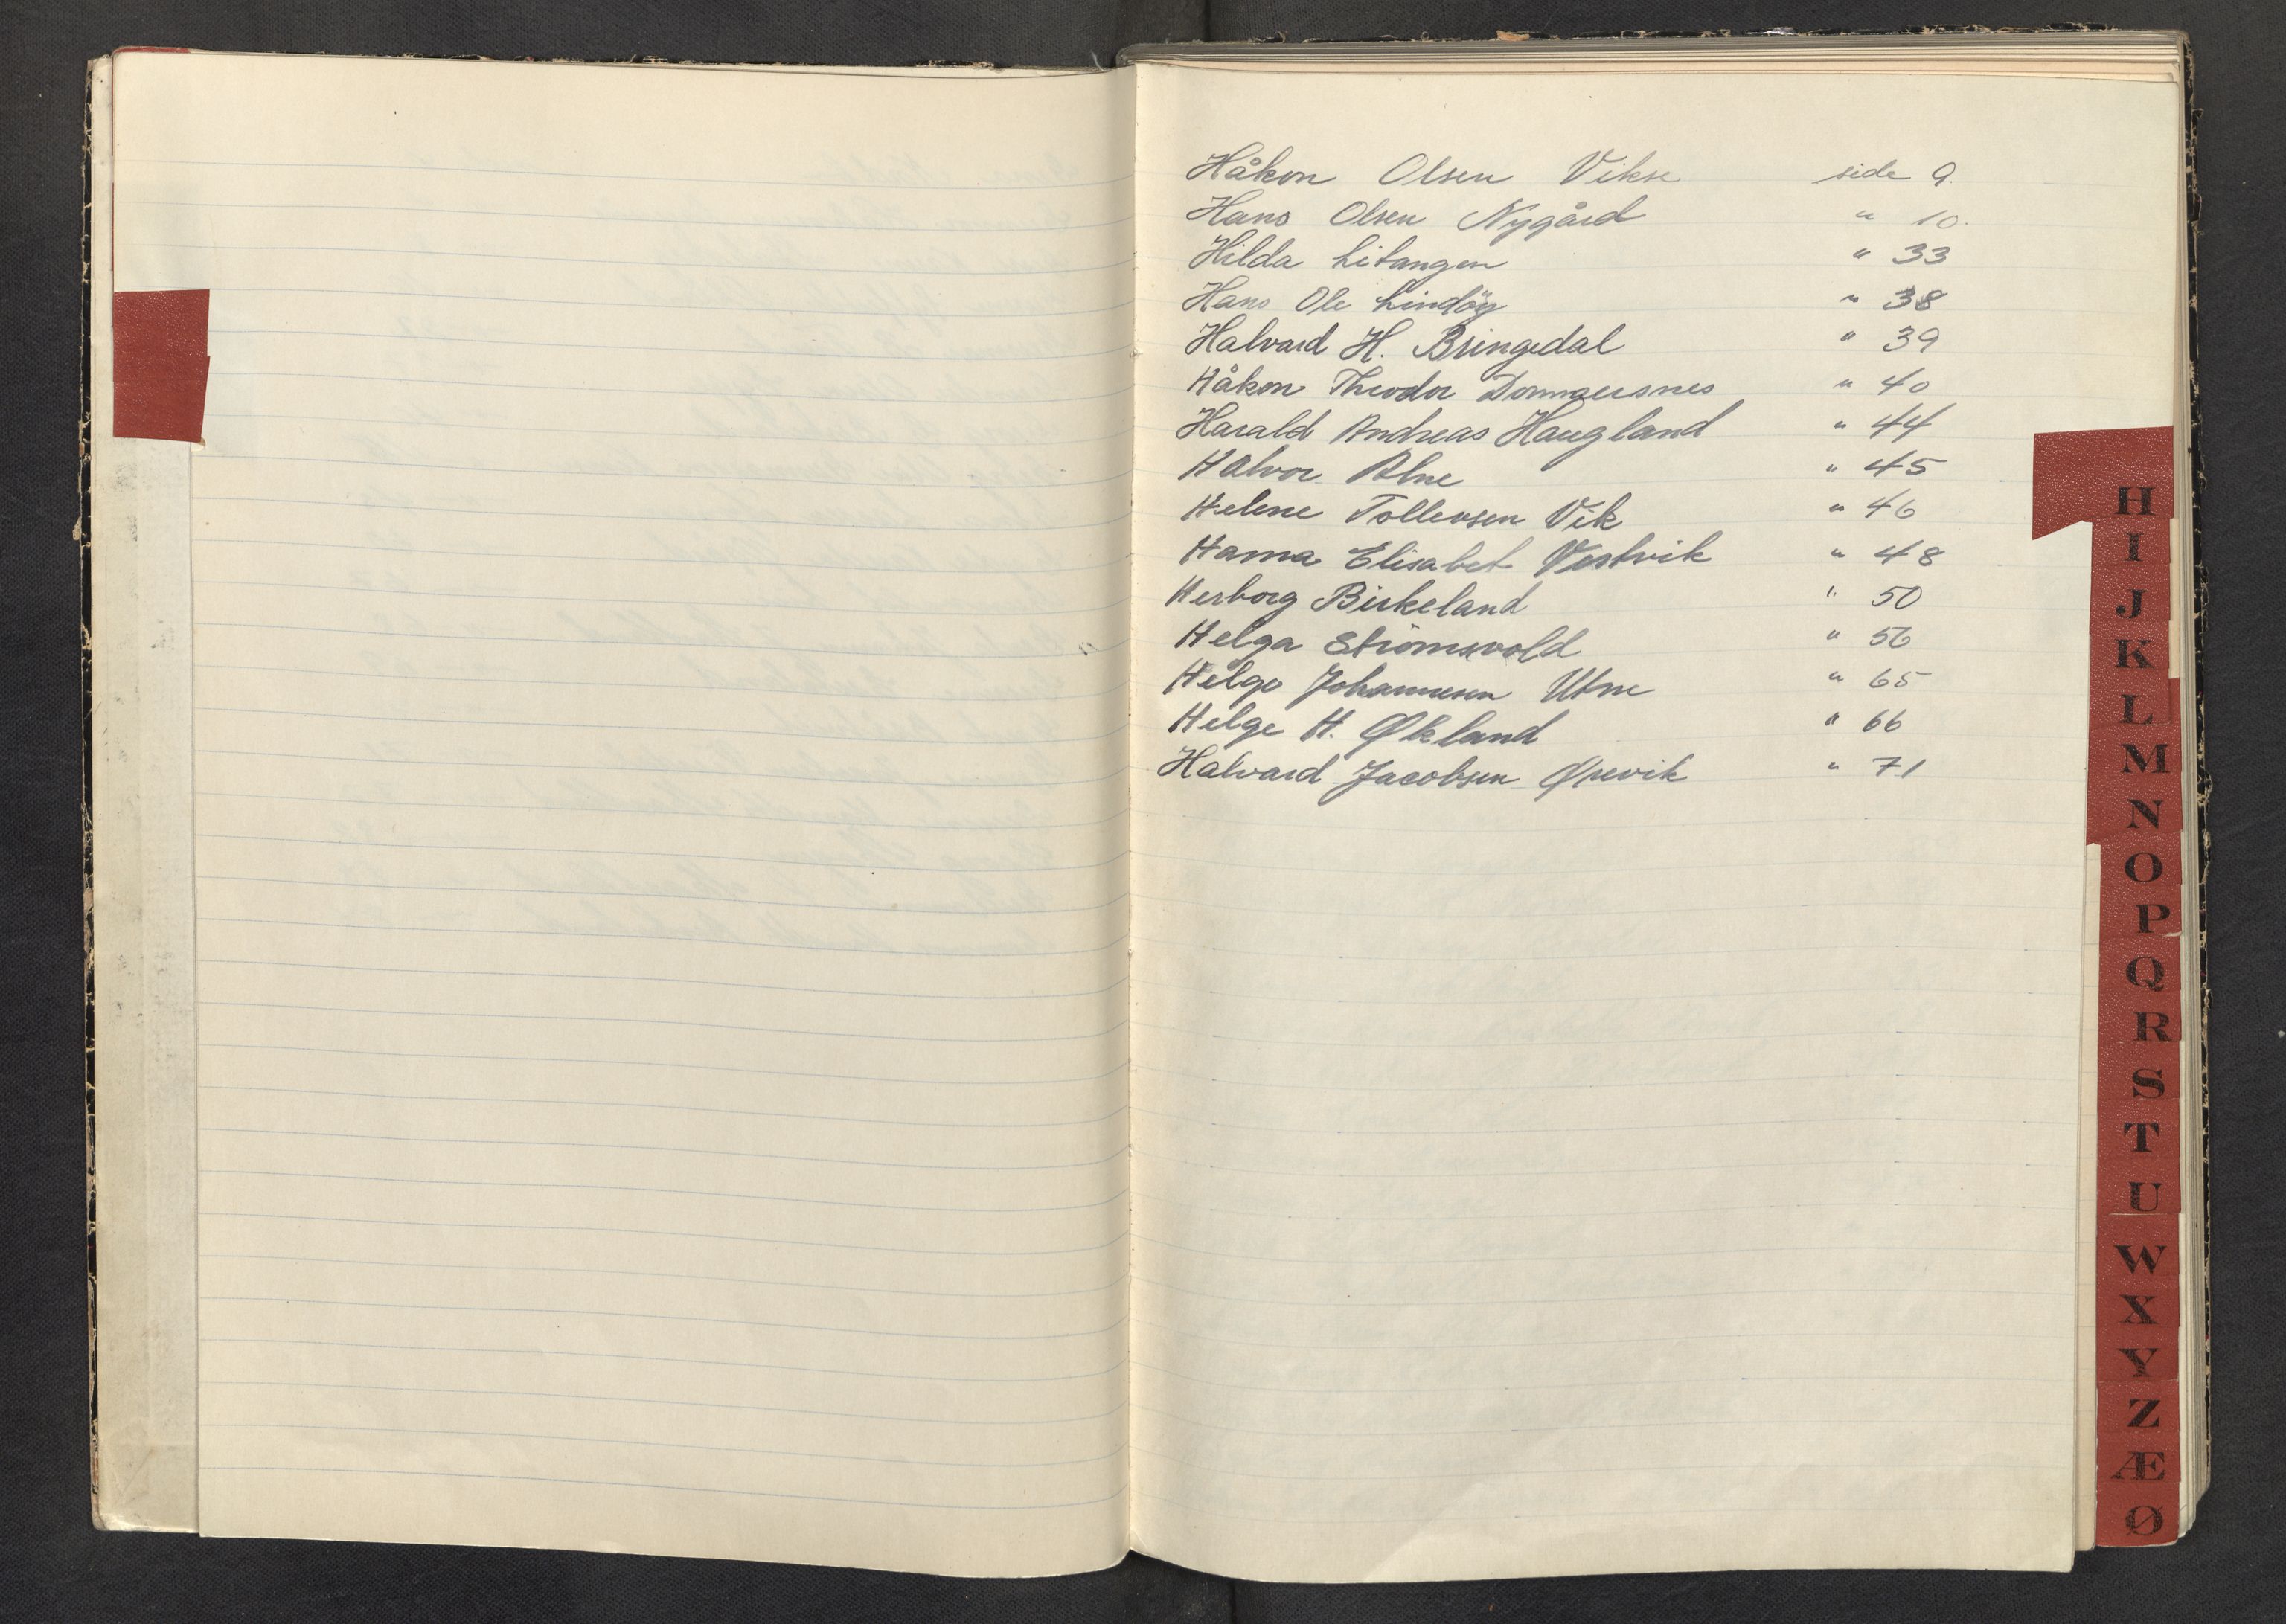 Håkon Olsen Vikse side 9.
Hans Olsen Nygård " 10.
Hilda Litangen " 33
Hans Ole Lindöy " 38
Halvard H. Bringedal " 39
Håkon Theodor Dommersnes " 40
Harald Andreas Haugland " 44
Halvor Alne " 45
Helene Tollevsen Vik " 46
Hanna Elisabet Vestvik " 48
Herborg Birkeland " 50
Helga Strömsvold " 56
Helge Johannesen Utne " 65
Helge H. Økland " 66
Halvard Jacobsen Ørevik " 71
H
I
J
K
L
M
N
O
P
Q
R
S
T
U
W
X
Y
Z
Æ
Ø